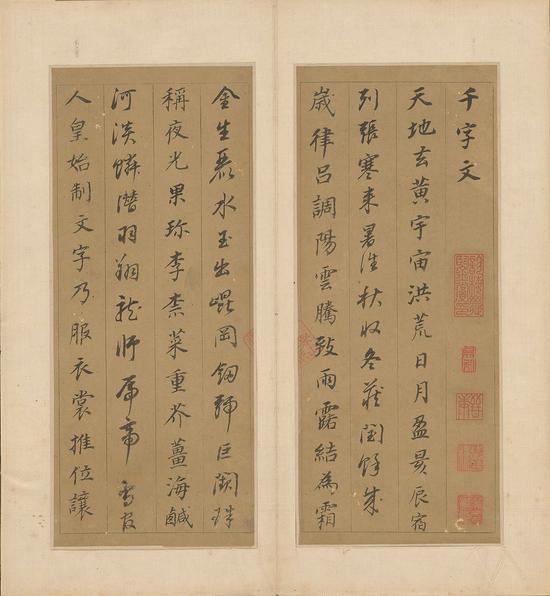 千字文
天地玄黃宇宙洪荒日月盈昃辰宿
列張寒來暑往秋收冬藏閏餘成
歲律呂調陽雲騰致雨露結為霜
金生麗水玉出崐岡劒號巨闕珠
稱夜光果珍李柰菜重芥薑海鹹
河淡鱗潛羽翔龍師火帝鳥官
人皇始制文字乃服衣裳推位讓